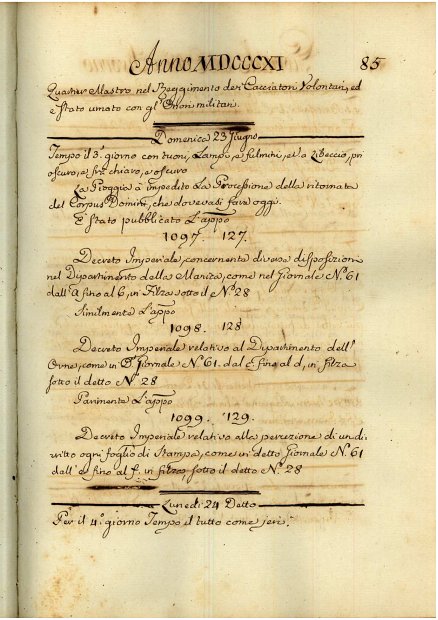 Anno MDCCCXI 85
Quartier Mastro nel Reggimento dei Cacciatori Volontari, ed
è stato umato con gl' Onori militari.
Domenica 23 Giugno
Tempo il 3.° giorno con tuoni, Lampi, e fulmini, ed a Libeccio, pri
oscuro, e fra chiaro, e oscuro
La Pioggia à impedito La Processione della ritornata
del Corpus Domini, che dovevasi fare oggi.
È stato pubblicato L'appo
1097. 127.
Decreto Imperiale, concernente diverse disposizioni
nel Dipartimento della Marica, come nel Giornale N.° 61
dall' a fino al b, in Filza sotto il N.° 28
Similmente L'appo
1098. 128
Decreto Imperiale relativo al Dipartimento dell'
Orne, come in d.° Giornale N.° 61. dal c. fino al d, in filza
sotto il detto N.° 28
Parimente L'appo
1099. 129.
Decreto Imperiale relativo alla percezione di un di
ritto ogni foglio di Stampa, come in detto Giornale N.° 61
dall' e fino al f. in filza, sotto il detto N.° 28
Lunedì 24 Detto
Per il 4.° giorno Tempo il tutto come jeri.